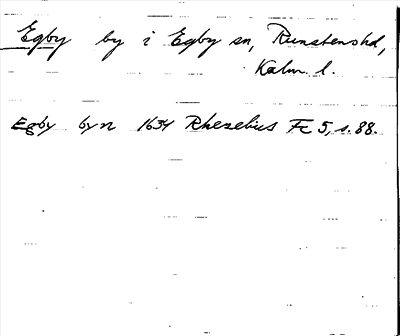 Egby by i Egby sn, Runstenshd,
Kalm. l.
Egby byn 1634 Rhezelius Fc 5, s. 88.